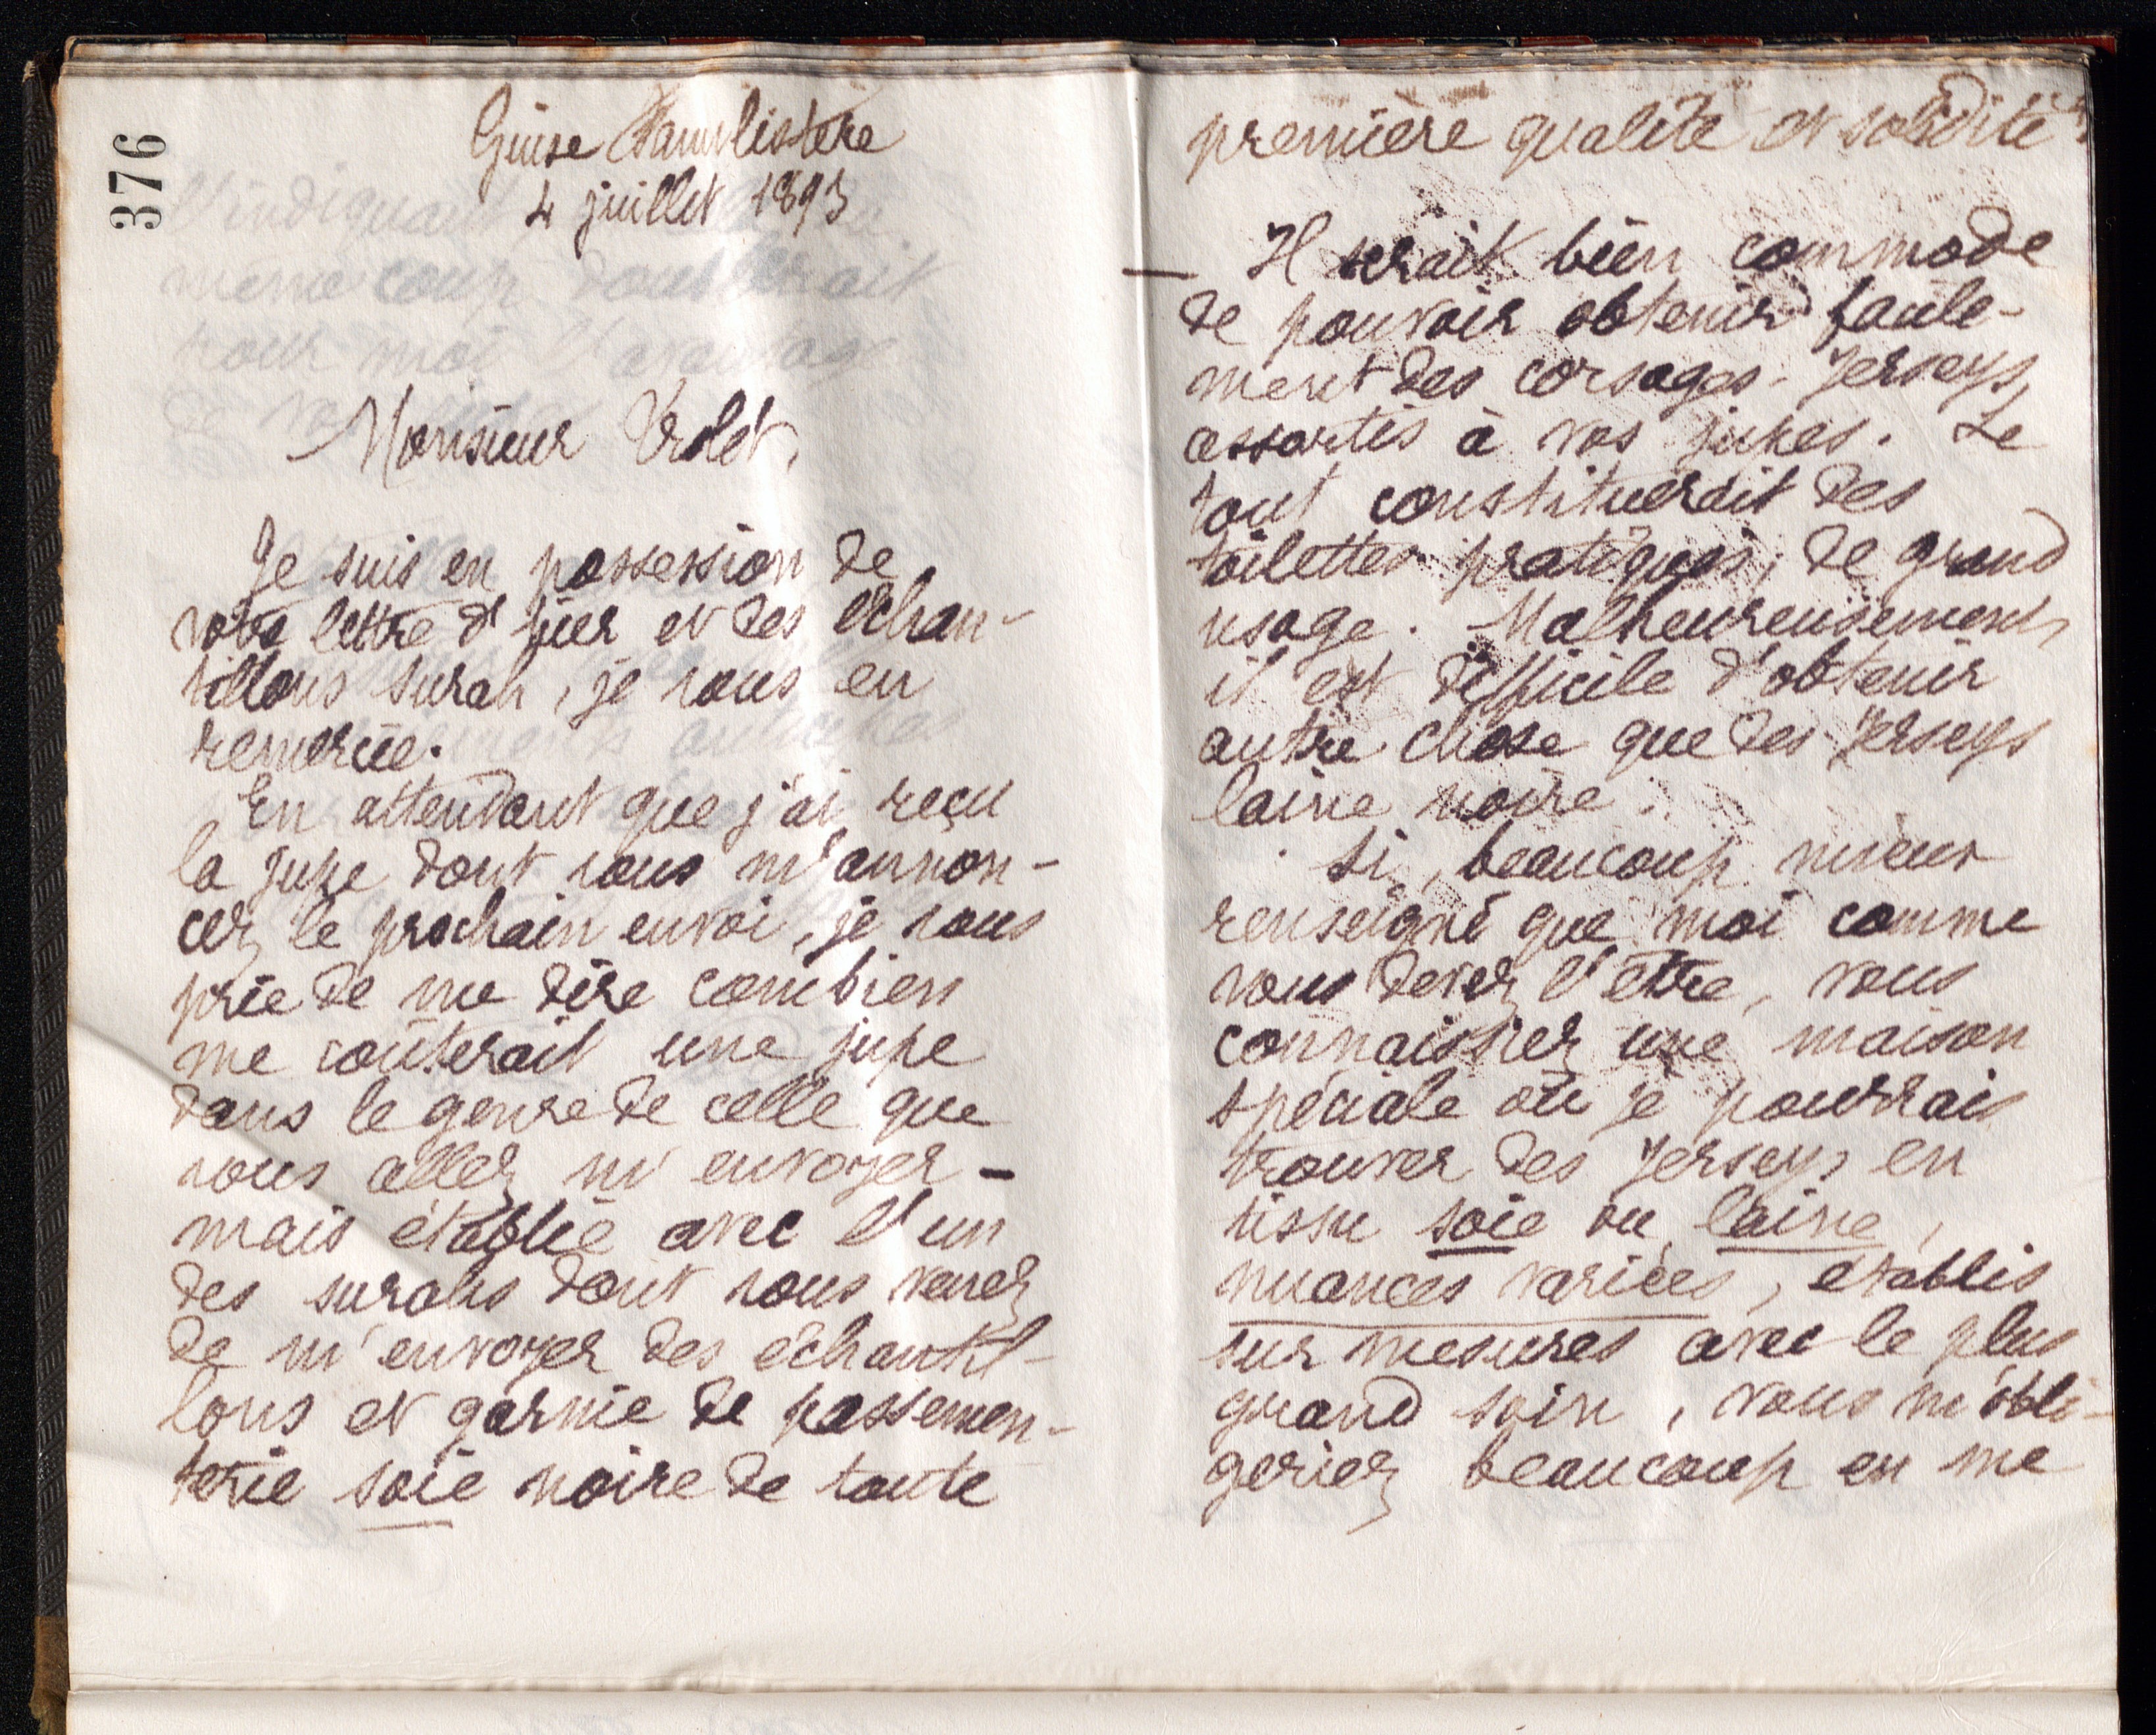 376
Guise Familistère
4 juillet 1893
Monsieur
Je suis en possession de
votre lettre d'hier et des échan-
tillons surah, je vous en
remercie.
En attendant que j'ai reçu
la jupe dont vous m'annon-
cez le prochain envoi, je vous
prie de me dire combien
me coûterait une jupe
dans le genre de celle que
vous allez m'envoyer -
mais établie avec l'un
des surahs dont vous venez
de m'envoyer des échantil-
lons et garnie de passemen-
terie soie noire de toute
première qualité et solidité
— Il serait bien commode
de pouvoir obtenir facile-
ment des corsages-Jerseys,
assortis à vos jupes. Le
tout constituerait des
toilettes pratiques, de grand
usage. Malheureusement,
il est difficile d'obtenir
autre chose que des Jerseys
laine noire.
Si, beaucoup mieux
renseigné que moi comme
vous devez l'être, vous
connaissiez une maison
spéciale où je pourrais
trouver des Jerseys en
tissu soie ou laine,
nuances variées, établis
sur mesures avec le plus
grand soin, vous m'obli-
geriez beaucoup en me